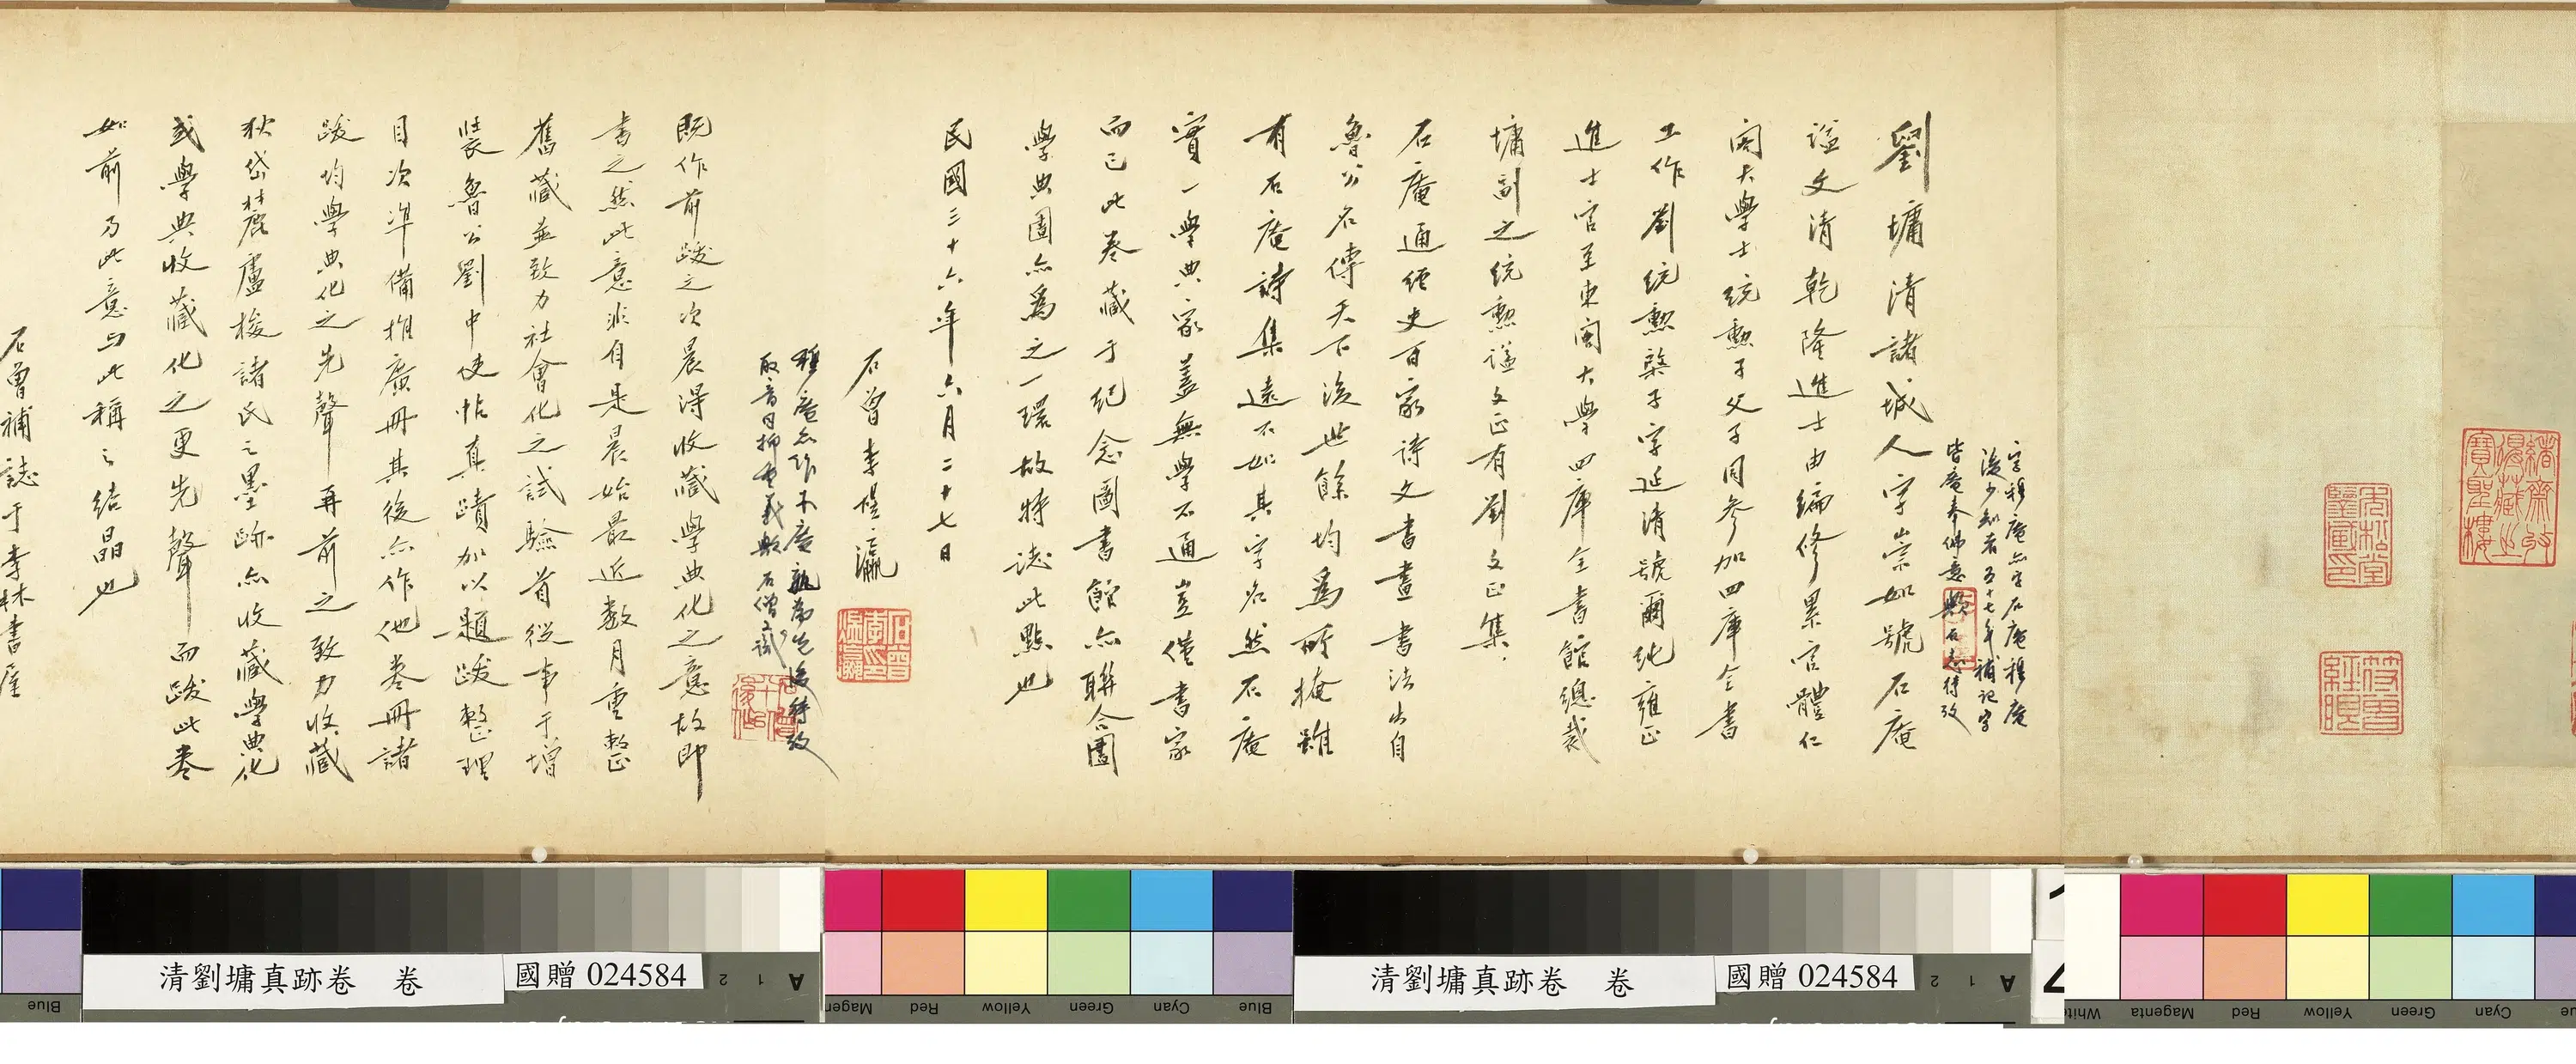 劉墉清諸城人字崇如號石庵
謚文清乾隆進士由編修累官體仁
閣大學士統勲子父子同參加四庫全書
工作劉統勲棨子字延清號爾純雍正
進士官至東閣大學四庫全書館總裁
墉副之統勲謚文正有劉文正集
石庵通經史百家詩文書畫書法出自
魯公名傳天下後世餘均為所掩雖
有石庵詩集遠不如其字名然石庵
實一學典家蓋無學不通豈僅書家
而已此卷藏于紀念圖書館亦聯合圖
學典圖亦為之一環故特誌此點也
民國三十六年六月二十七日
石曾李煜瀛
既作前跋之次晨得收藏學典化之意故即
書之然此意非自是晨始最近數月重整
舊藏並致力社會化之試驗首從事于增
裝魯公劉中使帖真蹟加以題跋整理
目次準備推廣冊其後亦作他卷冊諸
跋均學典化之先聲再前之致力收藏
狄岱麓盧梭諸氏之墨跡亦收藏學典化
或學典收藏化之更先聲而跋此卷
如前乃此意与此稱之結晶也
石曾補誌于李林書屋
清劉墉真跡卷 卷
國贈 024584
2 1 A
Blue
清劉墉真跡卷 卷
國贈 024584
2 1 A
Magen Red Yellow Green Cyan Blue
White Magenta Red Yellow Green Cyan